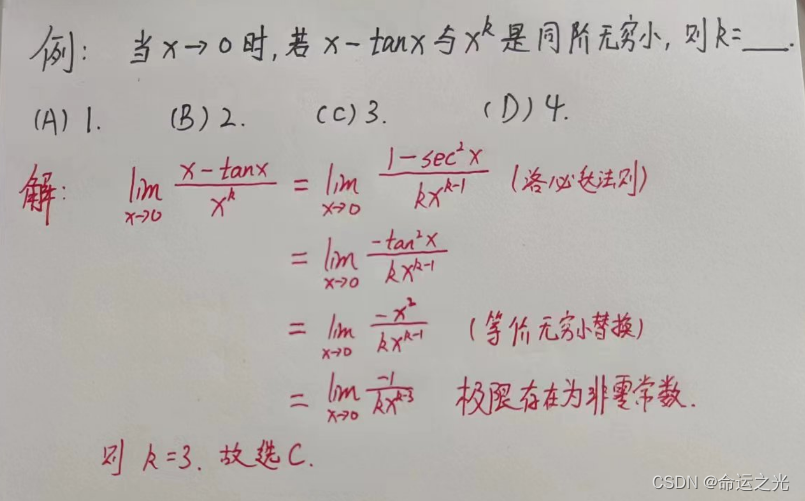 例: 当 x→0 时, 若 x-tanx 与 x^k 是同阶无穷小, 则 k=___.
(A) 1. (B) 2. (C) 3. (D) 4.
解: lim_{x→0} (x-tanx)/(x^k) = lim_{x→0} (1-sec²x)/(kx^{k-1}) (洛必达法则)
= lim_{x→0} (-tan²x)/(kx^{k-1})
= lim_{x→0} (-x²)/(kx^{k-1}) (等价无穷小替换)
= lim_{x→0} (-1)/(kx^{k-3}) 极限存在为非零常数.
则 k=3. 故选C.
CSDN @命运之光